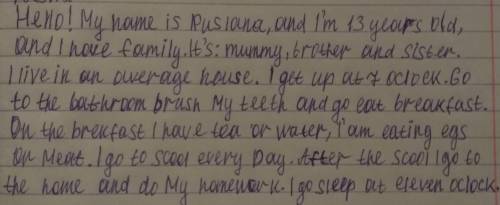 Hello! My name is Rusiana, and I'm 13 years old,
and I have family. It's: mummy, brother and sister.
I live in an average house. I get up at 7 oclock. Go
to the bathroom brush My teeth and go eat breakfast.
On the brekfast I have tea or water, I'am eating egs
or Meat. I go to scool every Day. After the scool I go to
the home and do My homework. I go sleep at eleven oclock.